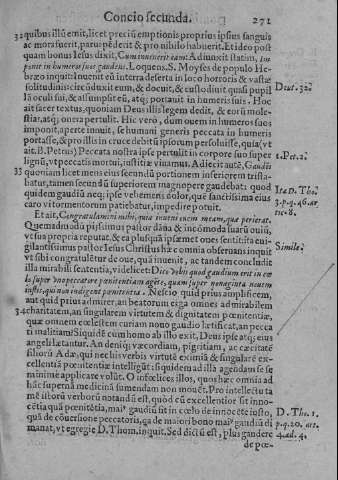 Concio secunda. 271
32 quibus illũ emit, licet preciũ emptionis proprius ipsius sanguis
ac mors fuerit, parũ pēderit & pro nihilo habuerit. Et ideo post
quam bonus Iesus dixit, Cum inuenerit eam: Adiunxit statim, Im
ponit in humeros suos gaudens. Loquens S. Moyses de populo He-
bræo inquit: Inuenit eũ in terra deserta in loco horroris & vastæ
solitudinis: circũduxit eum, & docuit, & custodiuit quasi pupil
lã oculi sui, & assumpsit eũ, atq; portauit in humeris suis. Hoc
ait sacer textus, quoniam Deus illis legem dedit, & eorũ mole-
stias, atq; onera pertulit. Hic verò, dum ouem in humeros suos
imponit, aperte inouit, se humani generis peccata in humeris
portasse, & pro illis in cruce debitũ ipsorum persoluisse, quia (vt
ait D. Petrus) Peccata nostra ipse pertulit in corpore suo super
lignũ, vt peccatis mortui, iustitiæ viuamus. Adiecit autē, Gaudēs
33 quoniam licet mens eius secundũ portionem inferiorem trista-
batur, tamen secundũ superiorem magnopere gaudebat: quod
quidem gaudiũ neq; ipse vehemens dolor, quē sanctissima eius
caro vi tormentorum patiebatur, impedire potuit.
Et ait, Congratulamini mihi, quia inueni ouem meam, quæ perierat.
Quemadmodũ pijssimus pastor dãna & incōmoda suarũ ouiũ,
vt sua propria reputat, & ea plusquã ipsæmet oues sentit: ita eui-
gilantissimus pastor Iesus Christus hæc omnia obseruans inquit
vt sibi congratulētur de oue, quã inuenit, ac tandem concludit
illa mirabili sententia, videlicet: Dico vobis quod gaudium erit in cœ
lo super vno peccatore pœnitentiam agēte, quam super nonaginta nouem
iustis, qui non indigent pœnitentia. Nescio quid prius amplificem,
aut quid prius admirer, an beatorum ciga omnes admirabilem
34 charitatem, an singularem virtutem & dignitatem pœnitentiæ,
quæ omnem cœlestem curiam nouo gaudio lætificat, an pecca
ti malitiam? Siquidē cum homo ab illo exit, Deus ipse atq; eius
angeli lætantur. An deniq; væcordiam, pigritiam, ac cæcitatē
filiorũ Adæ, qui nec his verbis virtutē eximiã & singularē ex-
cellentiã pœnitentiæ intelligũt: siquidem ad illã agendã se se
minimè applicare volũt. O infœlices illos, quos hæc omnia ad
hãc supernã medicinã sumendam non mouēt. Pro intellectu ta
mē istorũ verborũ notandũ est, quòd cũ excellentior sit inno-
cētia quã pœnitētia, maiꝰ gaudiũ sit in cœlo de innocēte iusto,
quã de cōuersione peccatoris, qa de maiori bono maiꝰ gaudiũ di
manat, vt egregiè D. Thom. inquit. Sed dictũ est, plus gaudere
de pœ-
Deut. 32.
1. Pet. 2.
Ita D. Tho.
3. p. q. 46. ar
tic. 8.
Simile.
D. Tho. 1.
p. q. 20. art.
4. ad. 4.